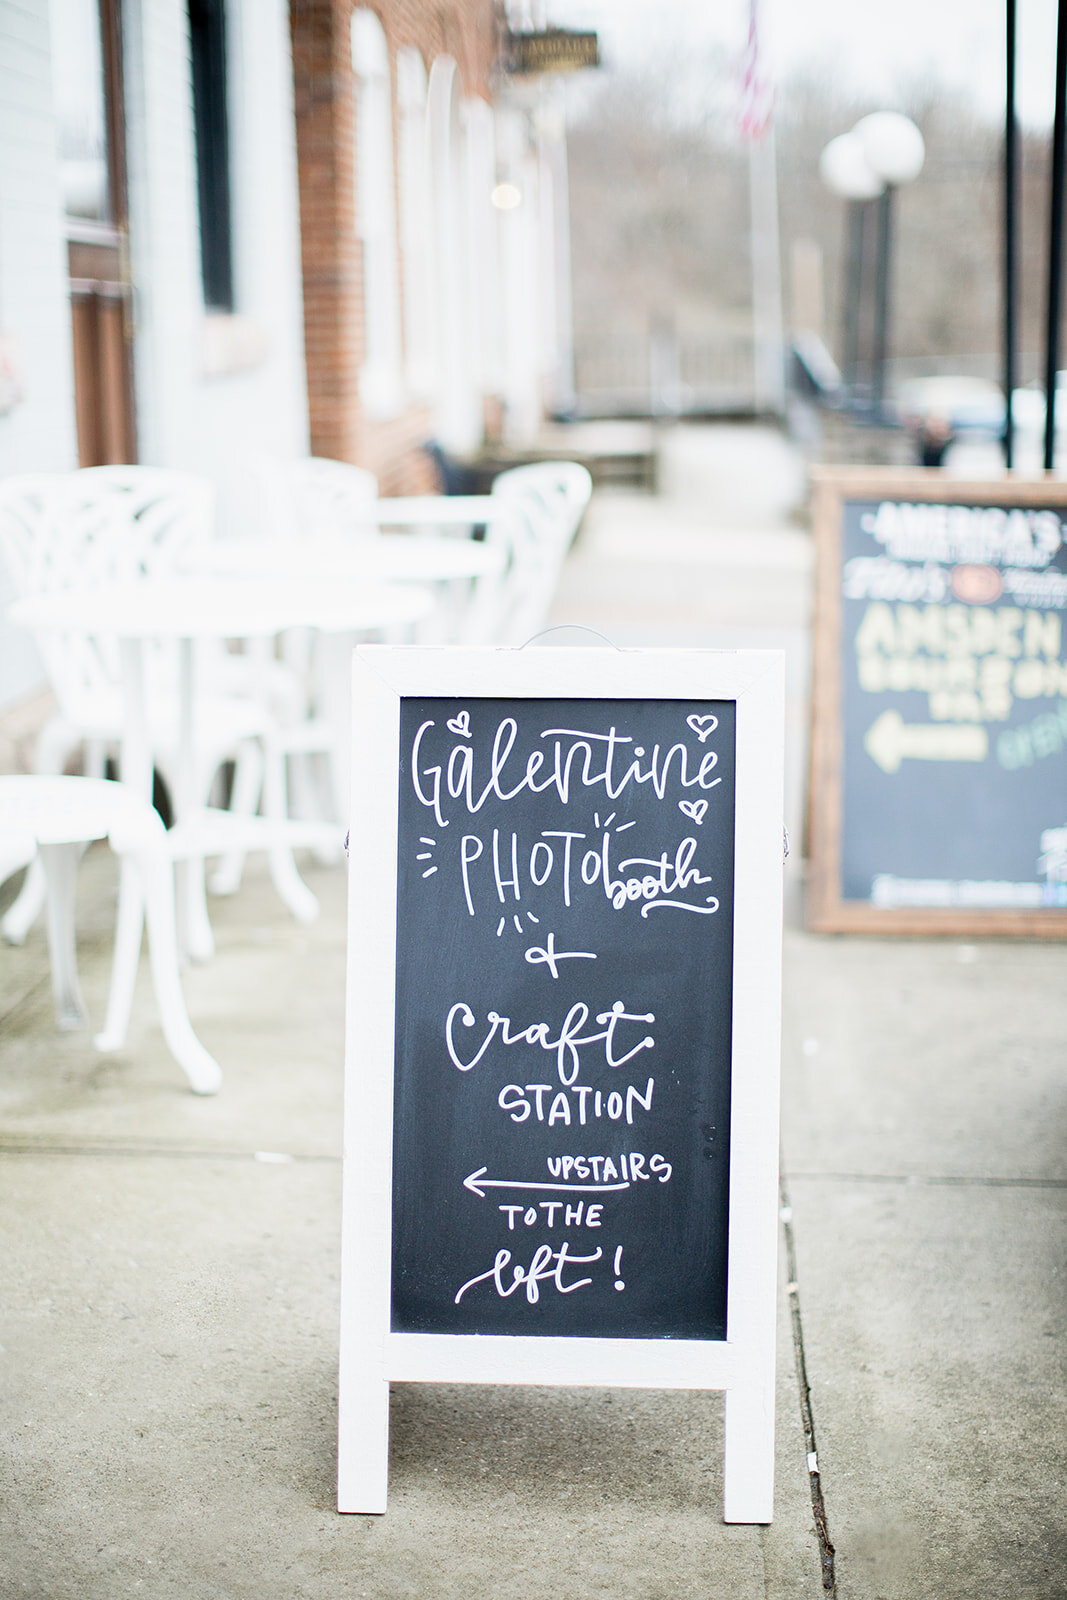 Galentine
PHOTO booth
&
Craft
STATION
UPSTAIRS
TO THE
left!
AMERICA'S
AMSDEN
BOURBON
BAR
OPEN